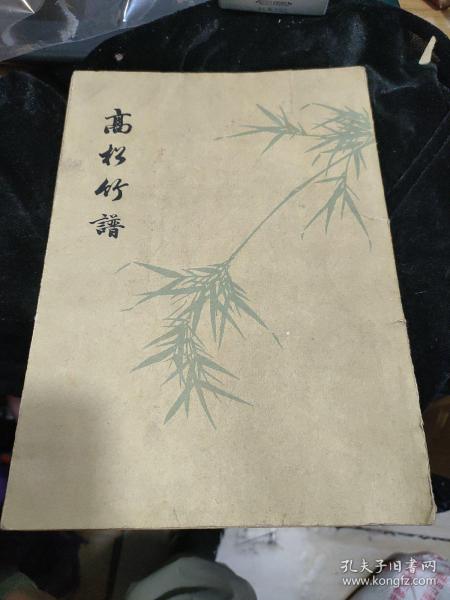 高松竹譜
孔夫子旧书网
www.kongfz.com